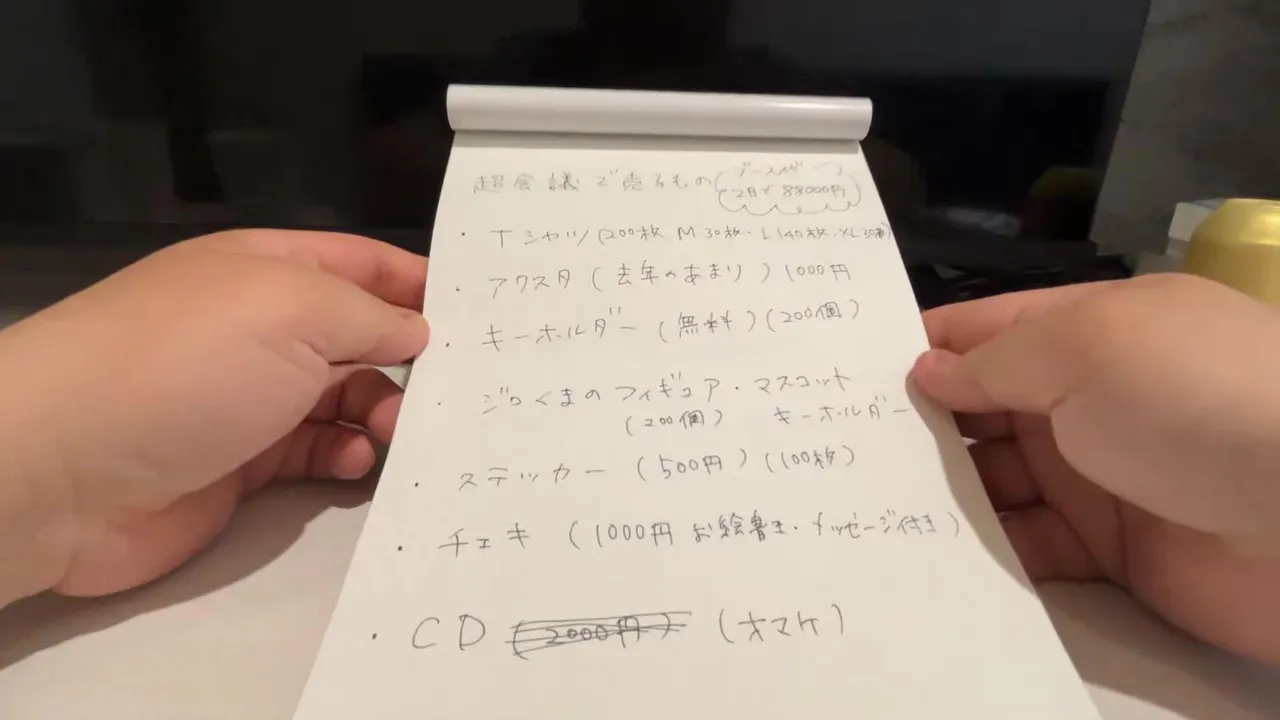 超会議で売るもの
2日で 88000円
・Tシャツ(200枚 M30枚・L140枚・XL30枚)
・アクスタ(去年のあまり)1000円
・キーホルダー(無料)(200個)
・ジロくまのフィギュア・マスコット
(200個) キーホルダー
・ステッカー(500円)(100枚)
・チェキ(1000円 お絵書き・メッセージ付き)
・CD (2000円) (オマケ)